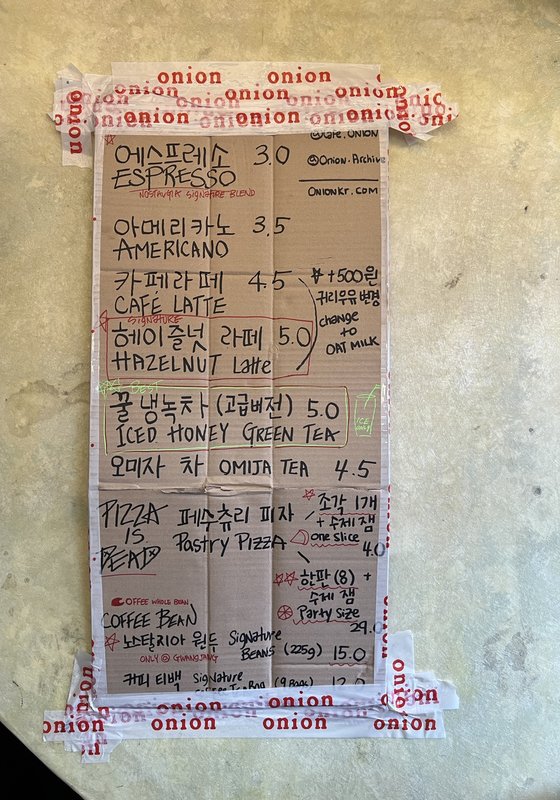 onion onion
onion onion onion
onion onion onion onion
onion
@Cafe.ONION
@Onion.Archive
ONIONKR.COM
에스프레소 3.0
ESPRESSO
NOSTALGIA SIGNATURE BLEND
아메리카노 3.5
AMERICANO
카페라떼 4.5
CAFE LATTE
+500원
귀리우유 변경
change
to
OAT MILK
SIGNATURE
헤이즐넛 라떼 5.0
HAZELNUT Latte
BEST
꿀냉녹차 (고급버전) 5.0
ICED HONEY GREEN TEA
ICE ONLY
오미자 차 OMIJA TEA 4.5
PIZZA
IS
DEAD
페수츄리 피자
Pastry PIZZA
조각 1개
+ 수제 잼
one slice
4.0
한판 (8) +
수제 잼
Party Size
29.0
COFFEE WHOLE BEAN
COFFEE BEAN
노스탈지아 원두 Signature
BEANS (225g) 15.0
ONLY @ GWANGJANG
커피 티백 Signature
(9 Bags) 12.0
onion onion onion
onion onion onion onion
onion
onion